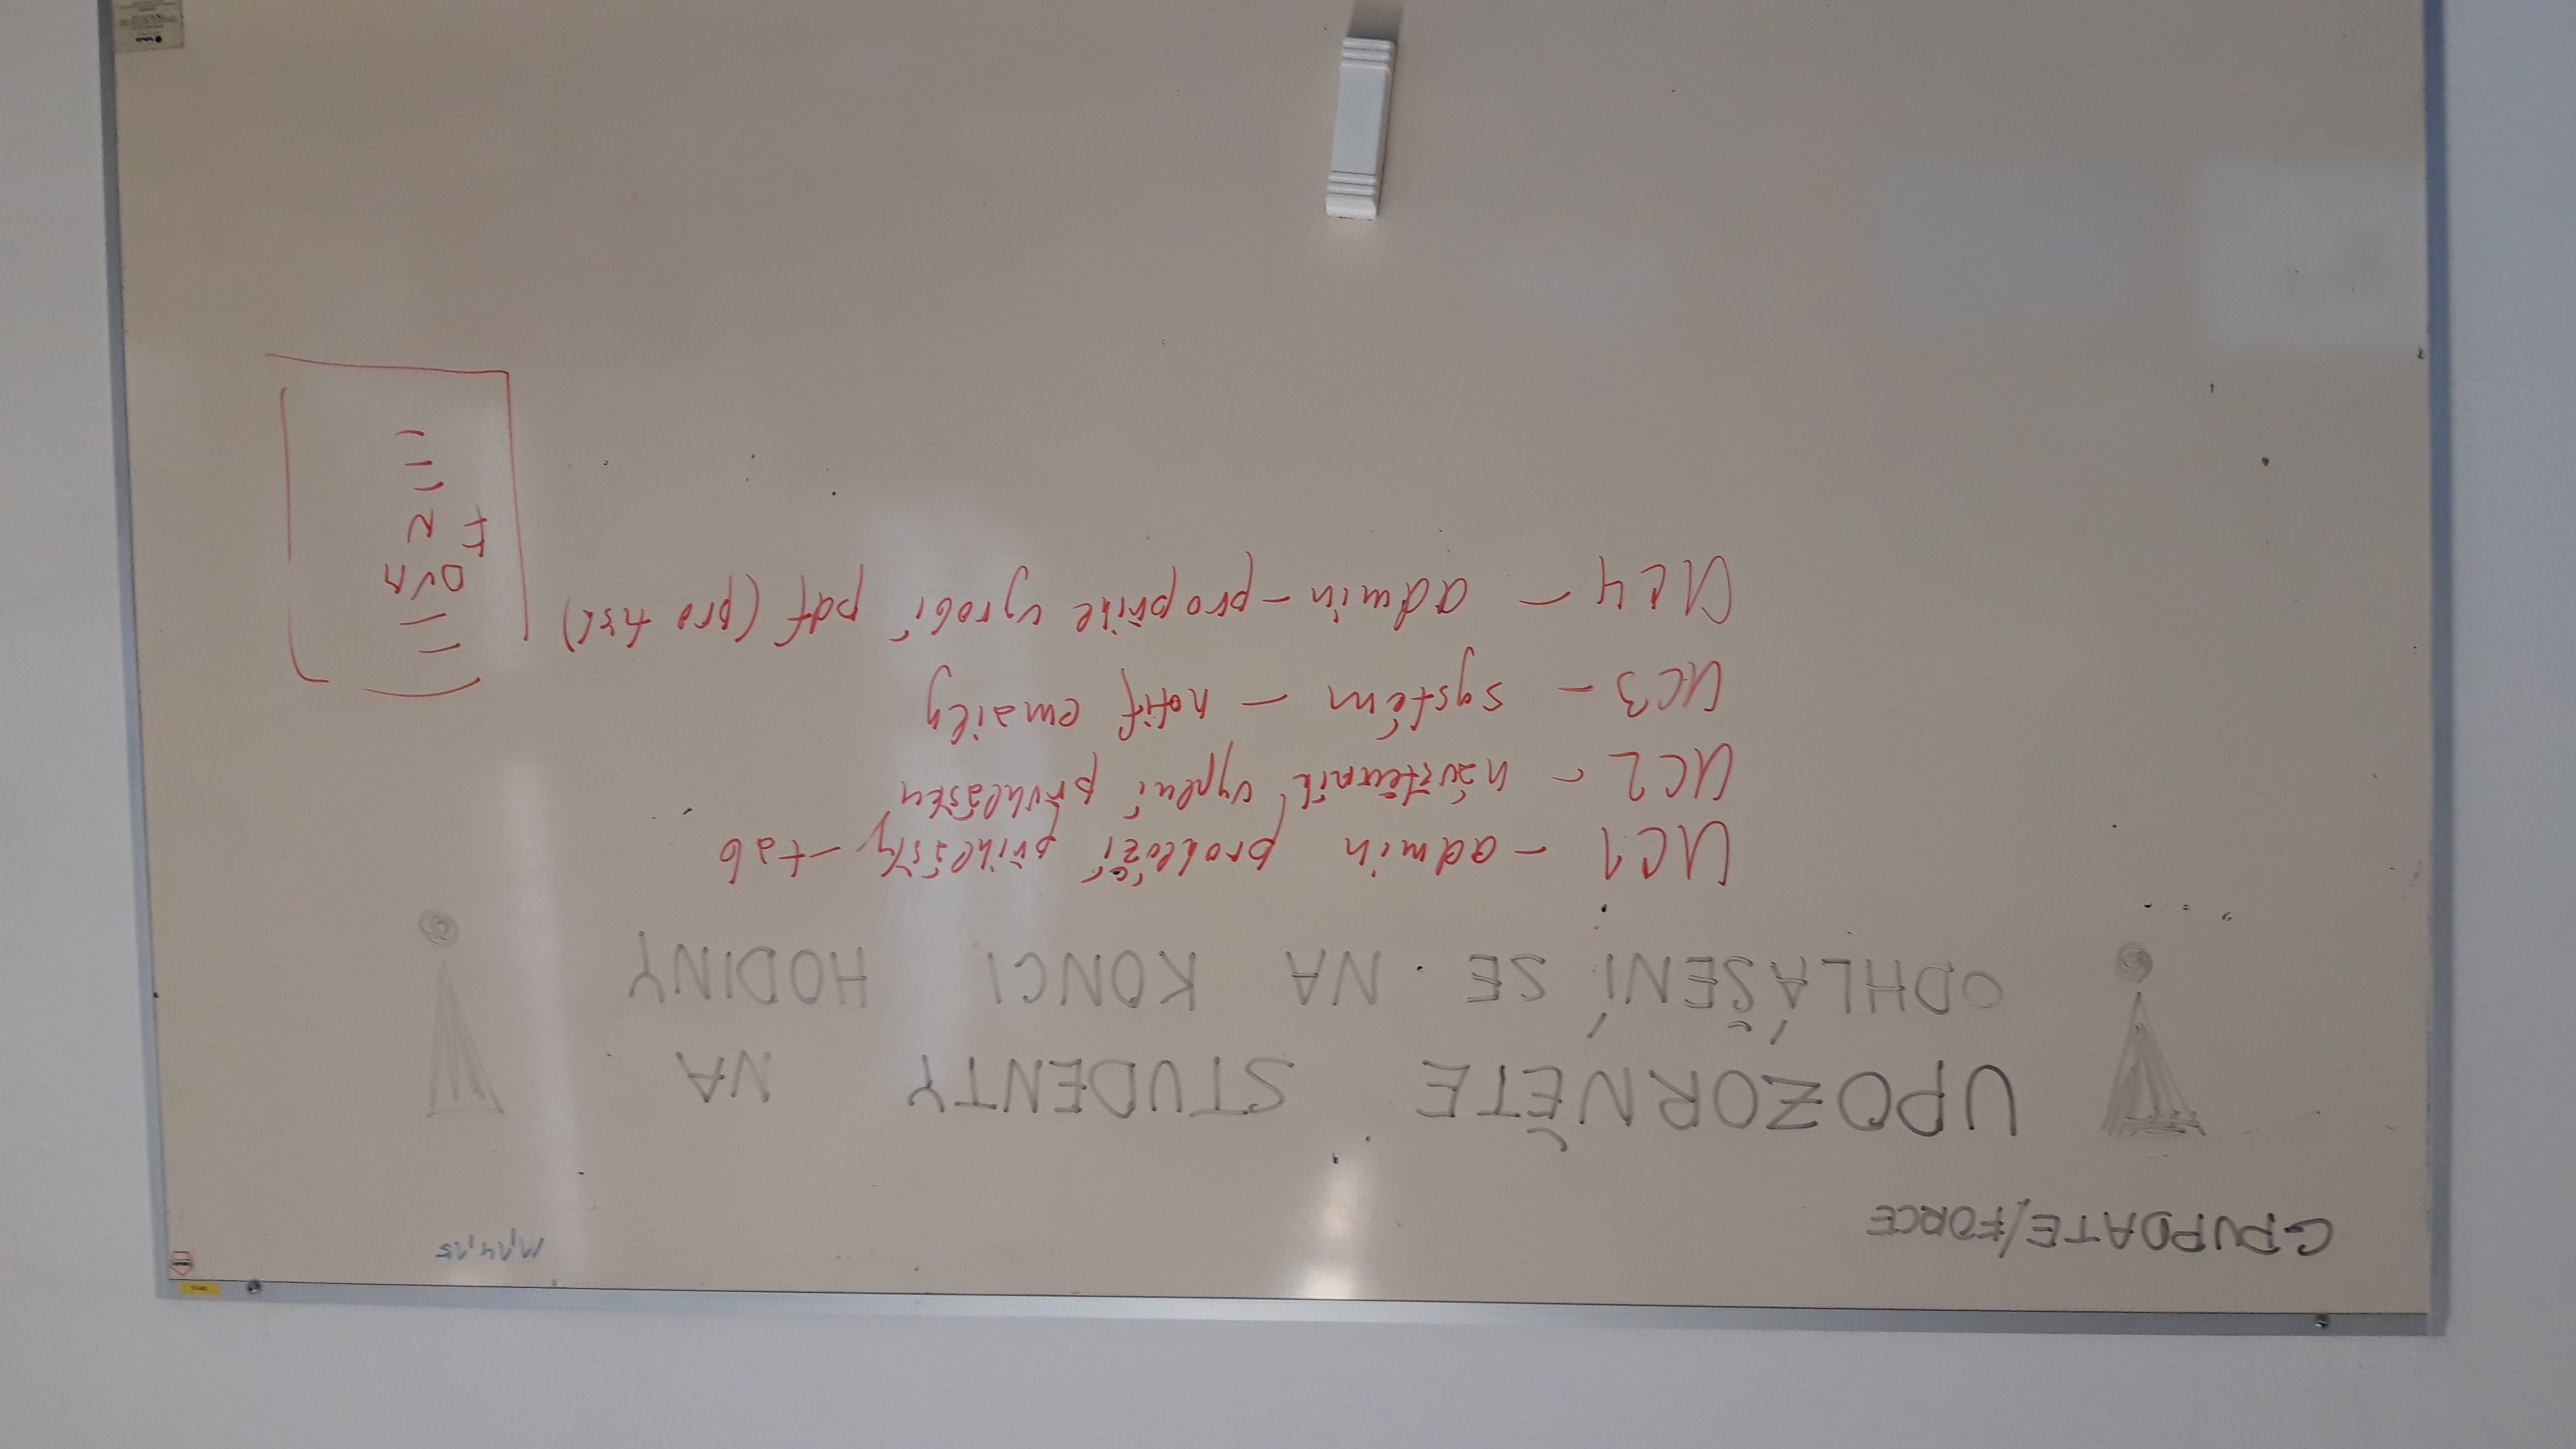 GPUPDATE/FORCE
11,14,15
! UPOZORNĚTE STUDENTY NA !
ODHLÁŠENÍ SE NA KONCI HODINY
UC1 - admin prohlíží přihlášky - tab
UC2 - návštěvník vyplní přihlášku
UC3 - systém - notif emaily
UC4 - admin - pro přihl vyrobí pdf (pro tisk)
F N